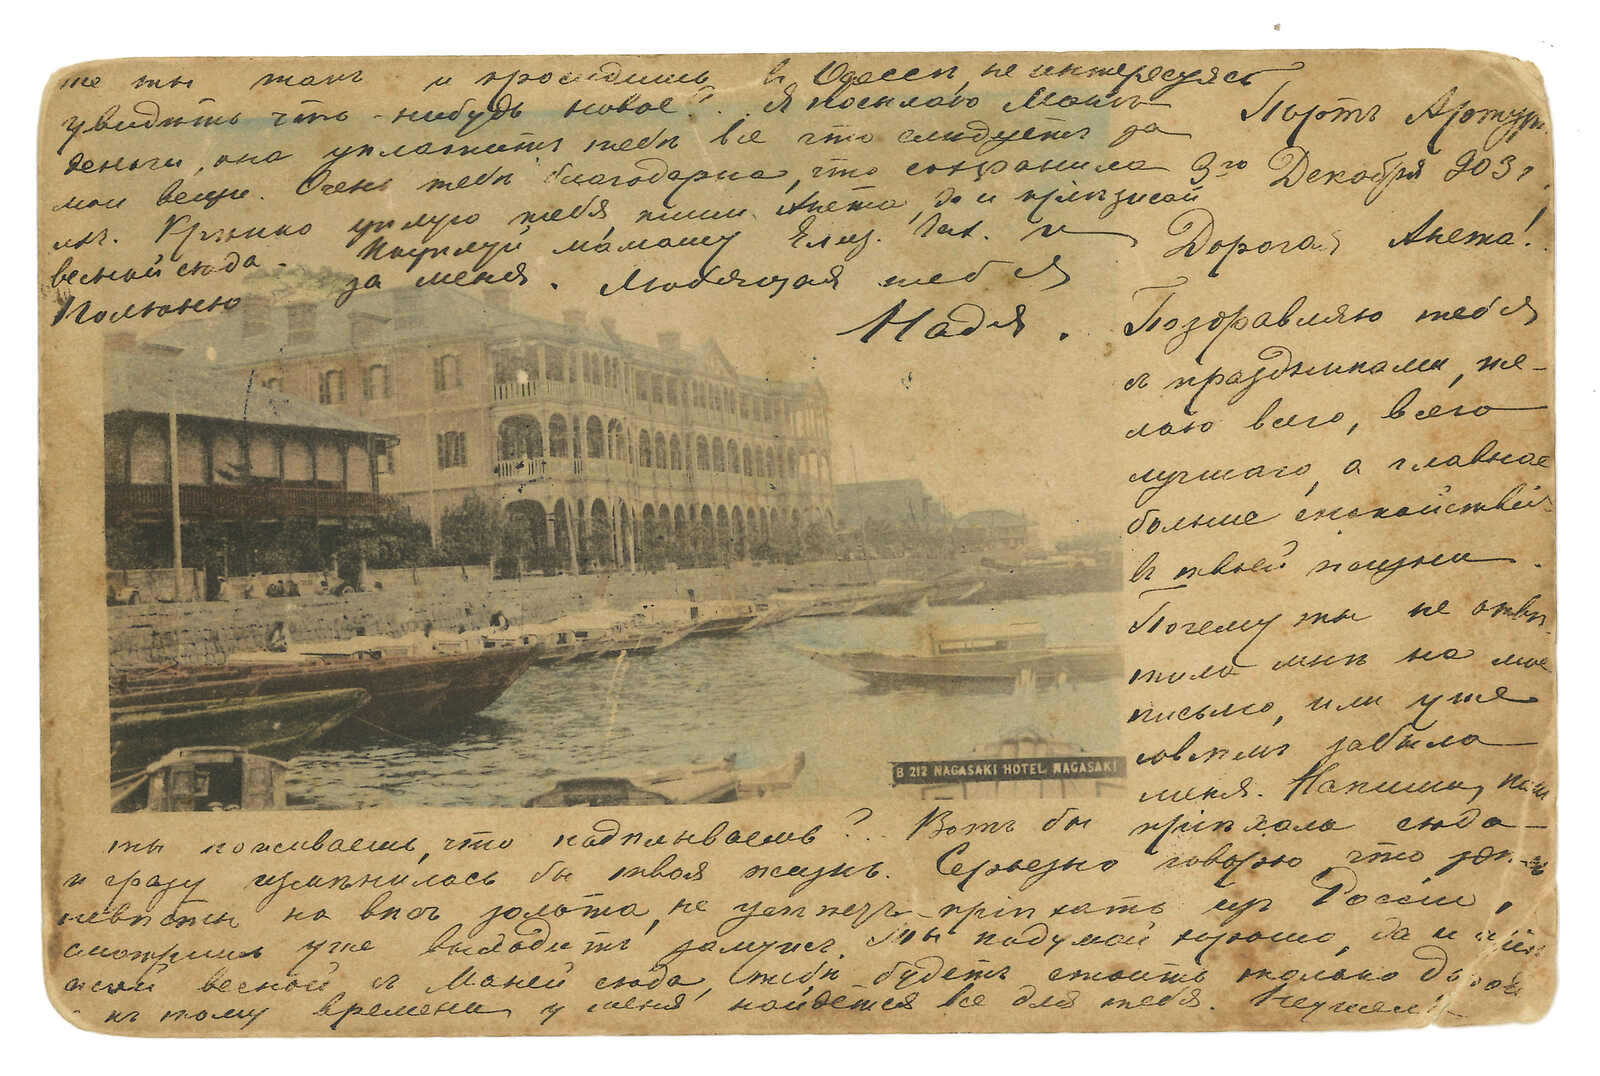 Портъ Артуръ.
3го Декабря 903 г.
Дорогая Анета!
Поздравляю тебя
съ праздниками, же-
лаю всего, всего
лучшаго, а главное
больше спокойствія
въ твоей жизни.
Почему ты не отвѣ-
тила мнѣ на мое
письмо, или уже
совсѣмъ забыла
меня. Напиши, какъ
ты поживаешь, что подѣлываешь? Вотъ бы пріѣхала сюда
и сразу измѣнилась бы твоя жизнь. Серьезно говорю, что здѣсь
невѣсты на вѣсъ золота, не успѣетъ пріѣхать изъ Россіи,
смотришь уже выходитъ замужъ. Ты подумай хорошо, да и
весной съ Маней сюда, тебѣ будетъ стоить только дорога
къ тому времени у меня найдется все для тебя. Неужели
же ты такъ и просидишь въ Одессѣ, не интересуясь
увидѣть что-нибудь новое? Я посылаю Манѣ
деньги, она уплатитъ тебѣ все что слѣдуетъ за
мои вещи. Очень тебѣ благодарна, что сохранила
ихъ. Крѣпко цѣлую тебя пиши Анета, да и пріѣзжай
весной сюда. Поцѣлуй мамашу Елиз. и
за меня. Любящая тебя
Надя.
B 212 NAGASAKI HOTEL NAGASAKI